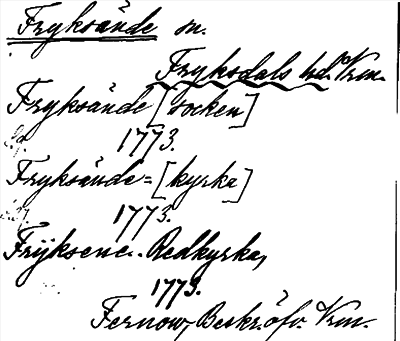 Fryksände sn.
Fryksdals hd. Vrm.
Fryksände [socken]
1773.
Fryksände= [kyrka]
1773.
Frÿksene.. Redkyrka,
1773.
Fernow, Beskr. öfv. Vrm.